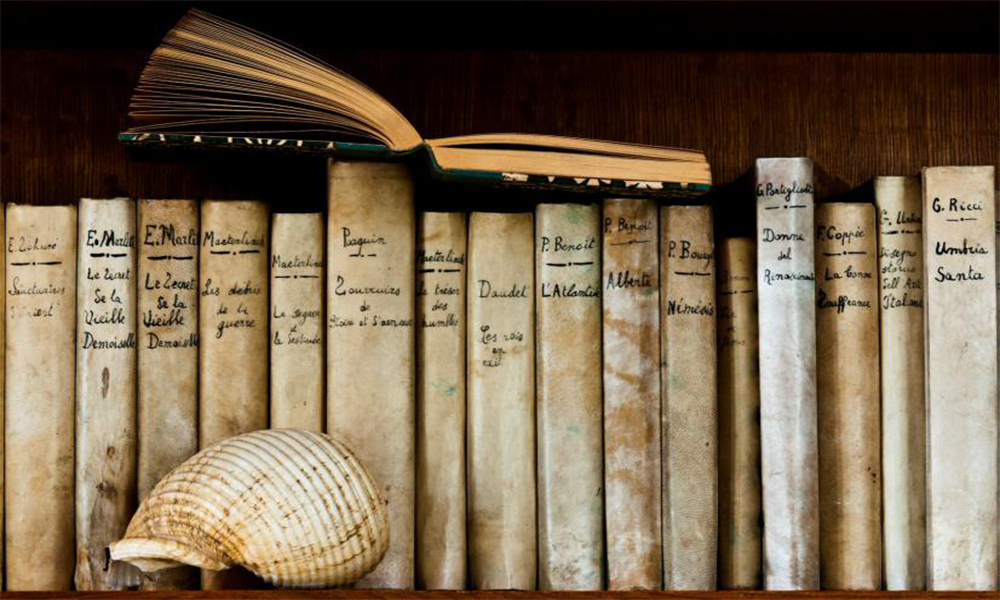 Sanctuaires
E. Marlitt
Le Secret
De la
Vieille
Demoiselle
E. Marlitt
Le Secret
De la
Vieille
Demoiselle
Maeterlinck
Les débris
de la
guerre
Maeterlinck
La
et
la
Paquin
Souvenirs
de
et
Maeterlinck
Le trésor
des
humbles
Daudet
Les rois
en
P. Benoit
L'Atlantide
P. Benoit
Alberte
P. Bourget
Némésis
G. Portigliotti
Donne
del
Rinascimento
F. Coppée
La bonne
Souffrance
Disegno
storico
dell'Arte
Italiana
G. Ricci
Umbria
Santa